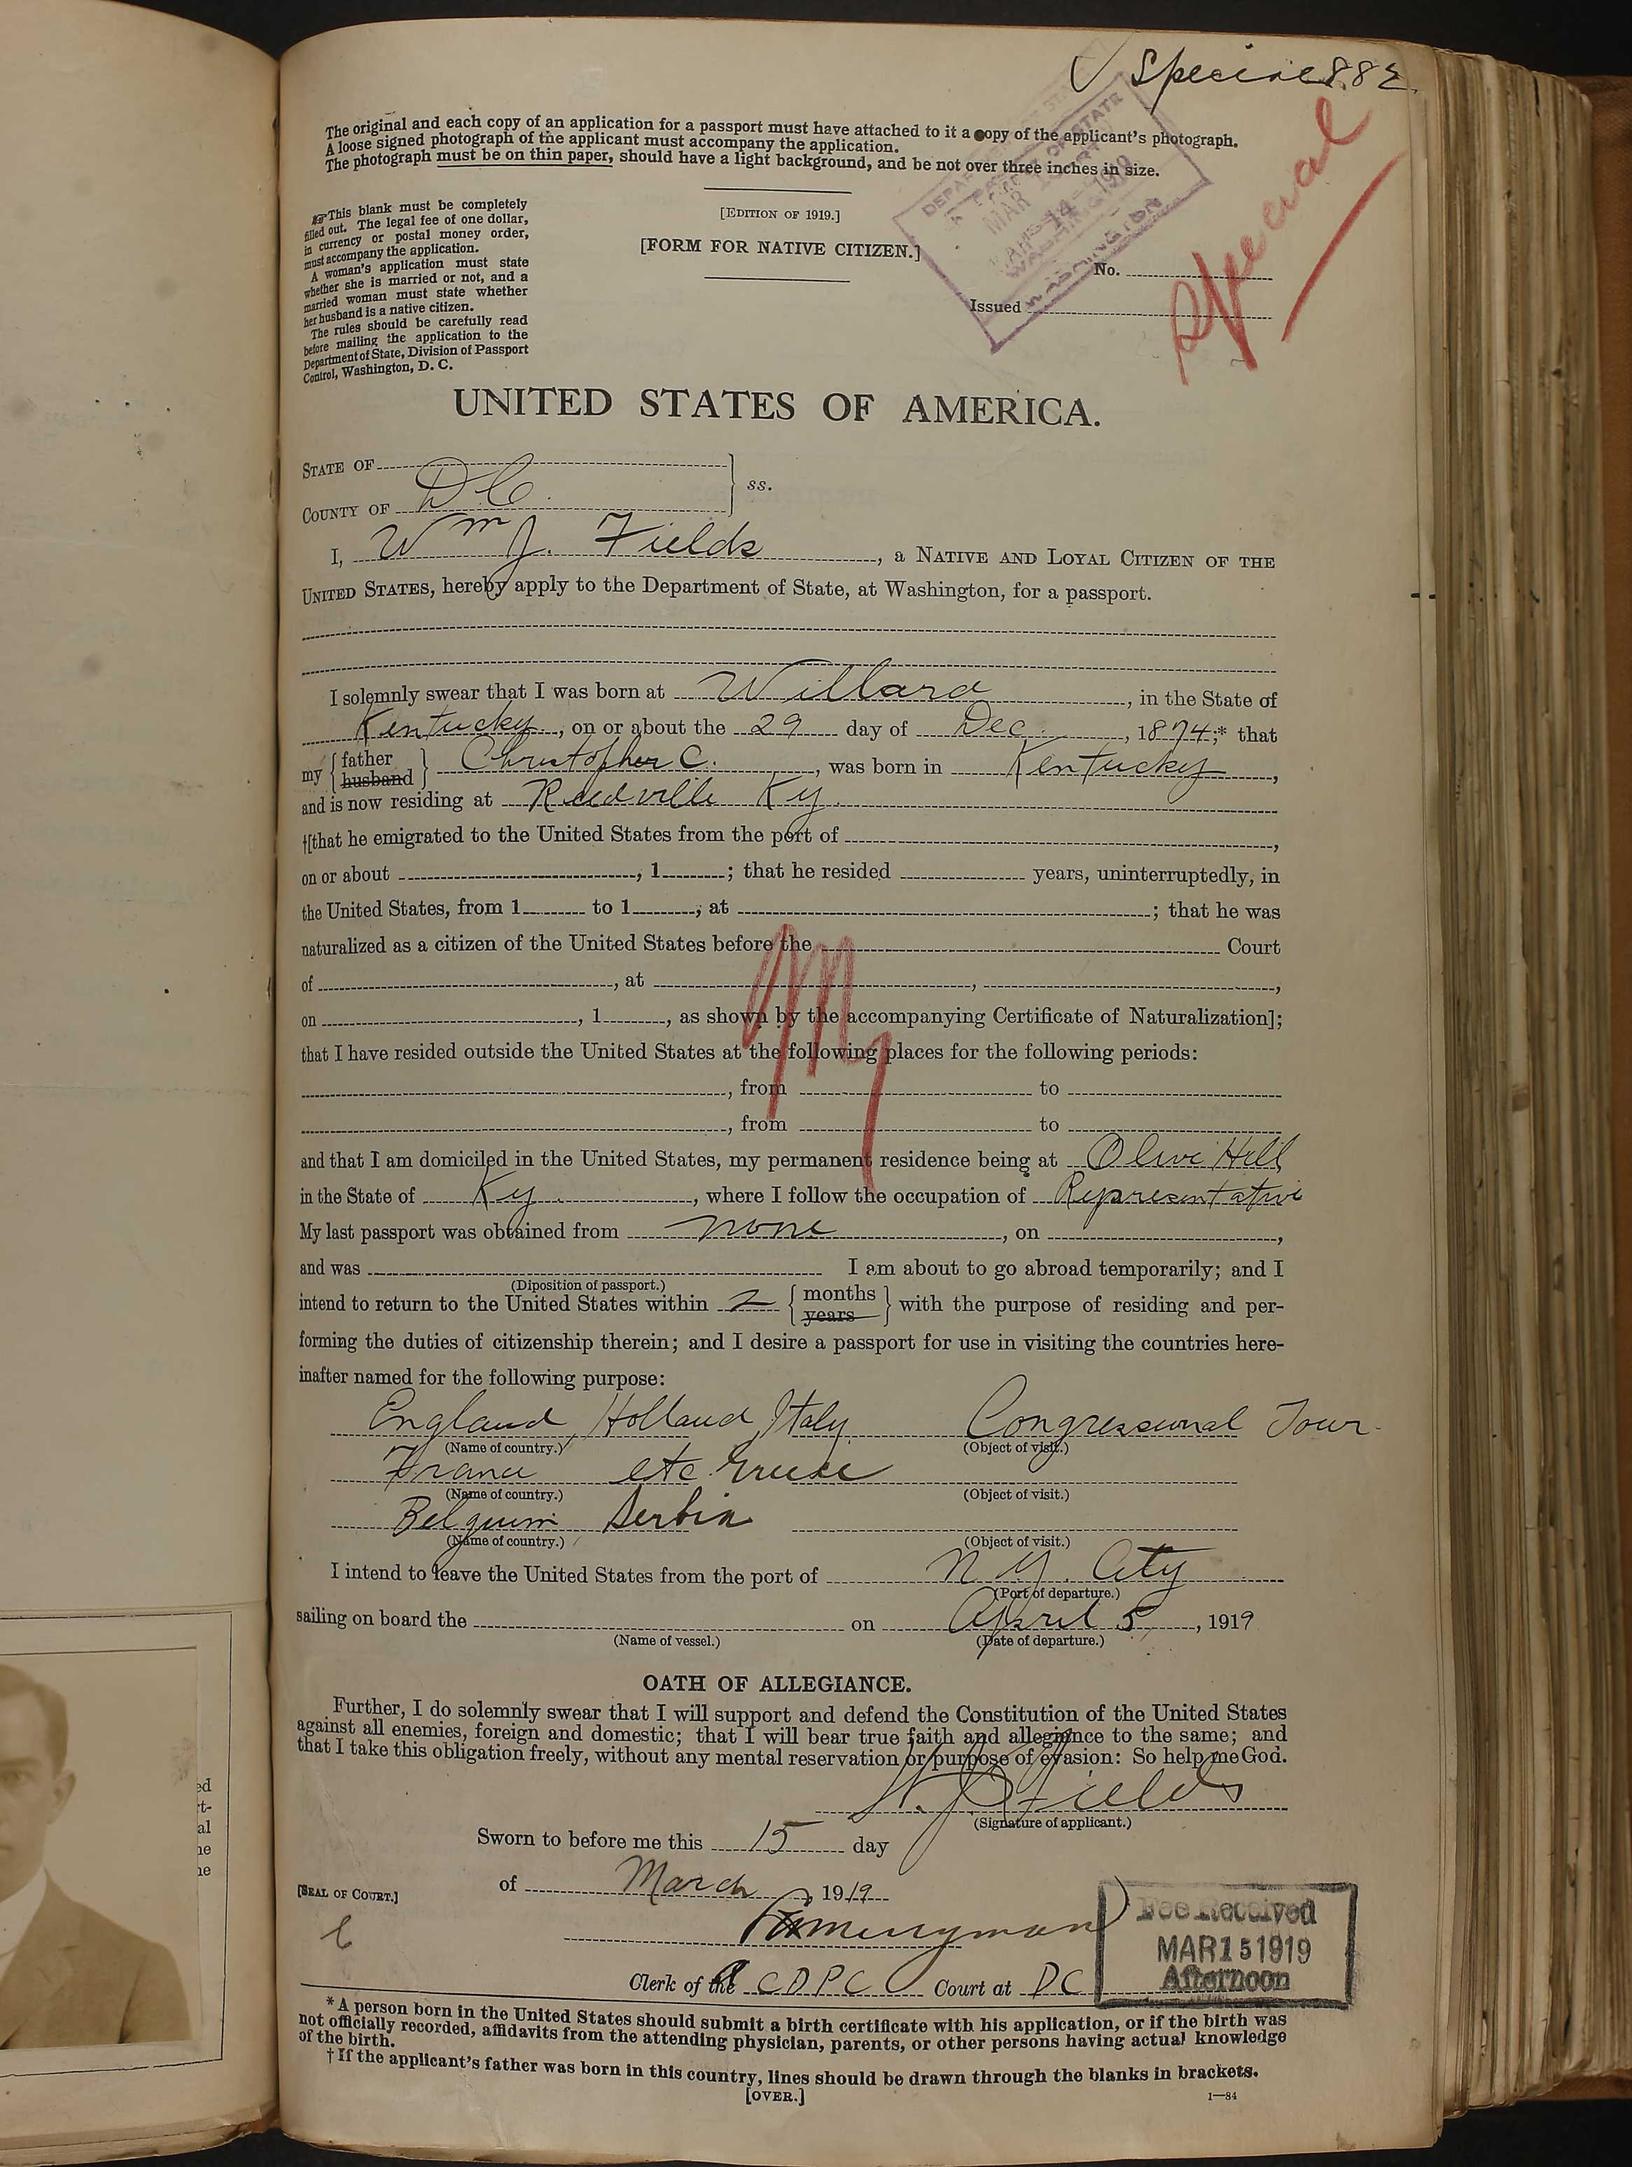 Special 882
Special
The original and each copy of an application for a passport must have attached to it a copy of the applicant's photograph.
A loose signed photograph of the applicant must accompany the application.
The photograph must be on thin paper, should have a light background, and be not over three inches in size.
This blank must be completely
filled out. The legal fee of one dollar,
in currency or postal money order,
must accompany the application.
A woman's application must state
whether she is married or not, and a
married woman must state whether
her husband is a native citizen.
The rules should be carefully read
before mailing the application to the
Department of State, Division of Passport
Control, Washington, D. C.
[EDITION OF 1919.]
[FORM FOR NATIVE CITIZEN.]
No.
Issued
WASHINGTON
UNITED STATES OF AMERICA.
STATE OF
COUNTY OF D.C. ss.
I, Wm J. Fields, a NATIVE AND LOYAL CITIZEN OF THE
UNITED STATES, hereby apply to the Department of State, at Washington, for a passport.
I solemnly swear that I was born at Willard, in the State of
Kentucky, on or about the 29 day of Dec., 1874;* that
my {father husband} Christopher C., was born in Kentucky,
and is now residing at Reedville Ky.
†[that he emigrated to the United States from the port of ,
on or about , 1 ; that he resided years, uninterruptedly, in
the United States, from 1 to 1 , at ; that he was
naturalized as a citizen of the United States before the Court
of , at , ,
on , 1 , as shown by the accompanying Certificate of Naturalization];
that I have resided outside the United States at the following places for the following periods:
, from to
, from to
and that I am domiciled in the United States, my permanent residence being at Olive Hill
in the State of Ky., where I follow the occupation of Representative
My last passport was obtained from none, on ,
and was I am about to go abroad temporarily; and I
(Diposition of passport.)
intend to return to the United States within 2 {months years} with the purpose of residing and per-
forming the duties of citizenship therein; and I desire a passport for use in visiting the countries here-
inafter named for the following purpose:
England, Holland, Italy. Congressional Tour.
(Name of country.) (Object of visit.)
France etc. Greece
(Name of country.) (Object of visit.)
Belguim Serbia
(Name of country.) (Object of visit.)
I intend to leave the United States from the port of N.Y. City
(Port of departure.)
sailing on board the on April 5, 1919
(Name of vessel.) (Date of departure.)
OATH OF ALLEGIANCE.
Further, I do solemnly swear that I will support and defend the Constitution of the United States
against all enemies, foreign and domestic; that I will bear true faith and allegiance to the same; and
that I take this obligation freely, without any mental reservation or purpose of evasion: So help me God.
W. J. Fields
(Signature of applicant.)
Sworn to before me this 15 day
of March, 1919
[SEAL OF COURT.]
Merryman
Clerk of the CDPC Court at DC
Fee Received
MAR 15 1919
Afternoon
* A person born in the United States should submit a birth certificate with his application, or if the birth was
not officially recorded, affidavits from the attending physician, parents, or other persons having actual knowledge
of the birth.
† If the applicant's father was born in this country, lines should be drawn through the blanks in brackets.
[OVER.]
1—84